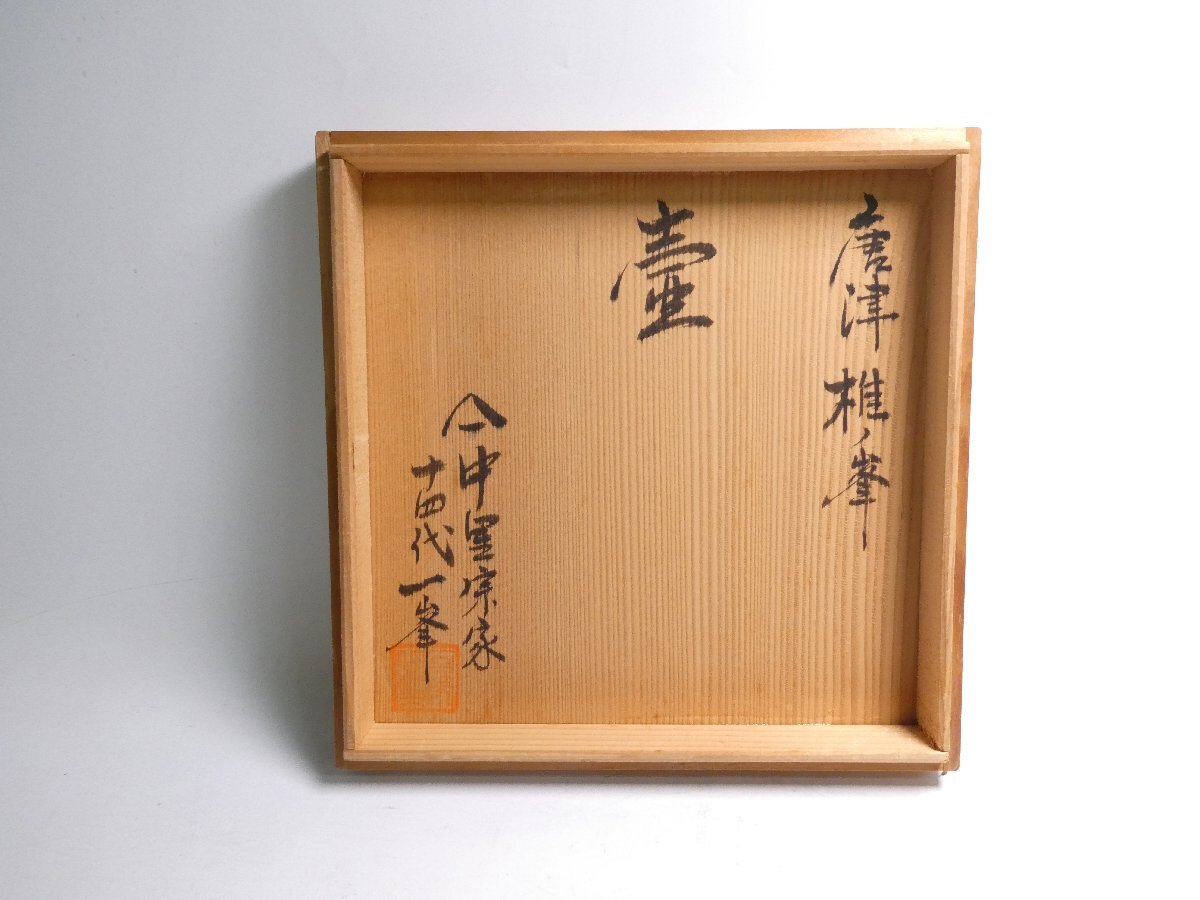 唐津 椎ノ峯
壷
中里宗家
十四代一峯